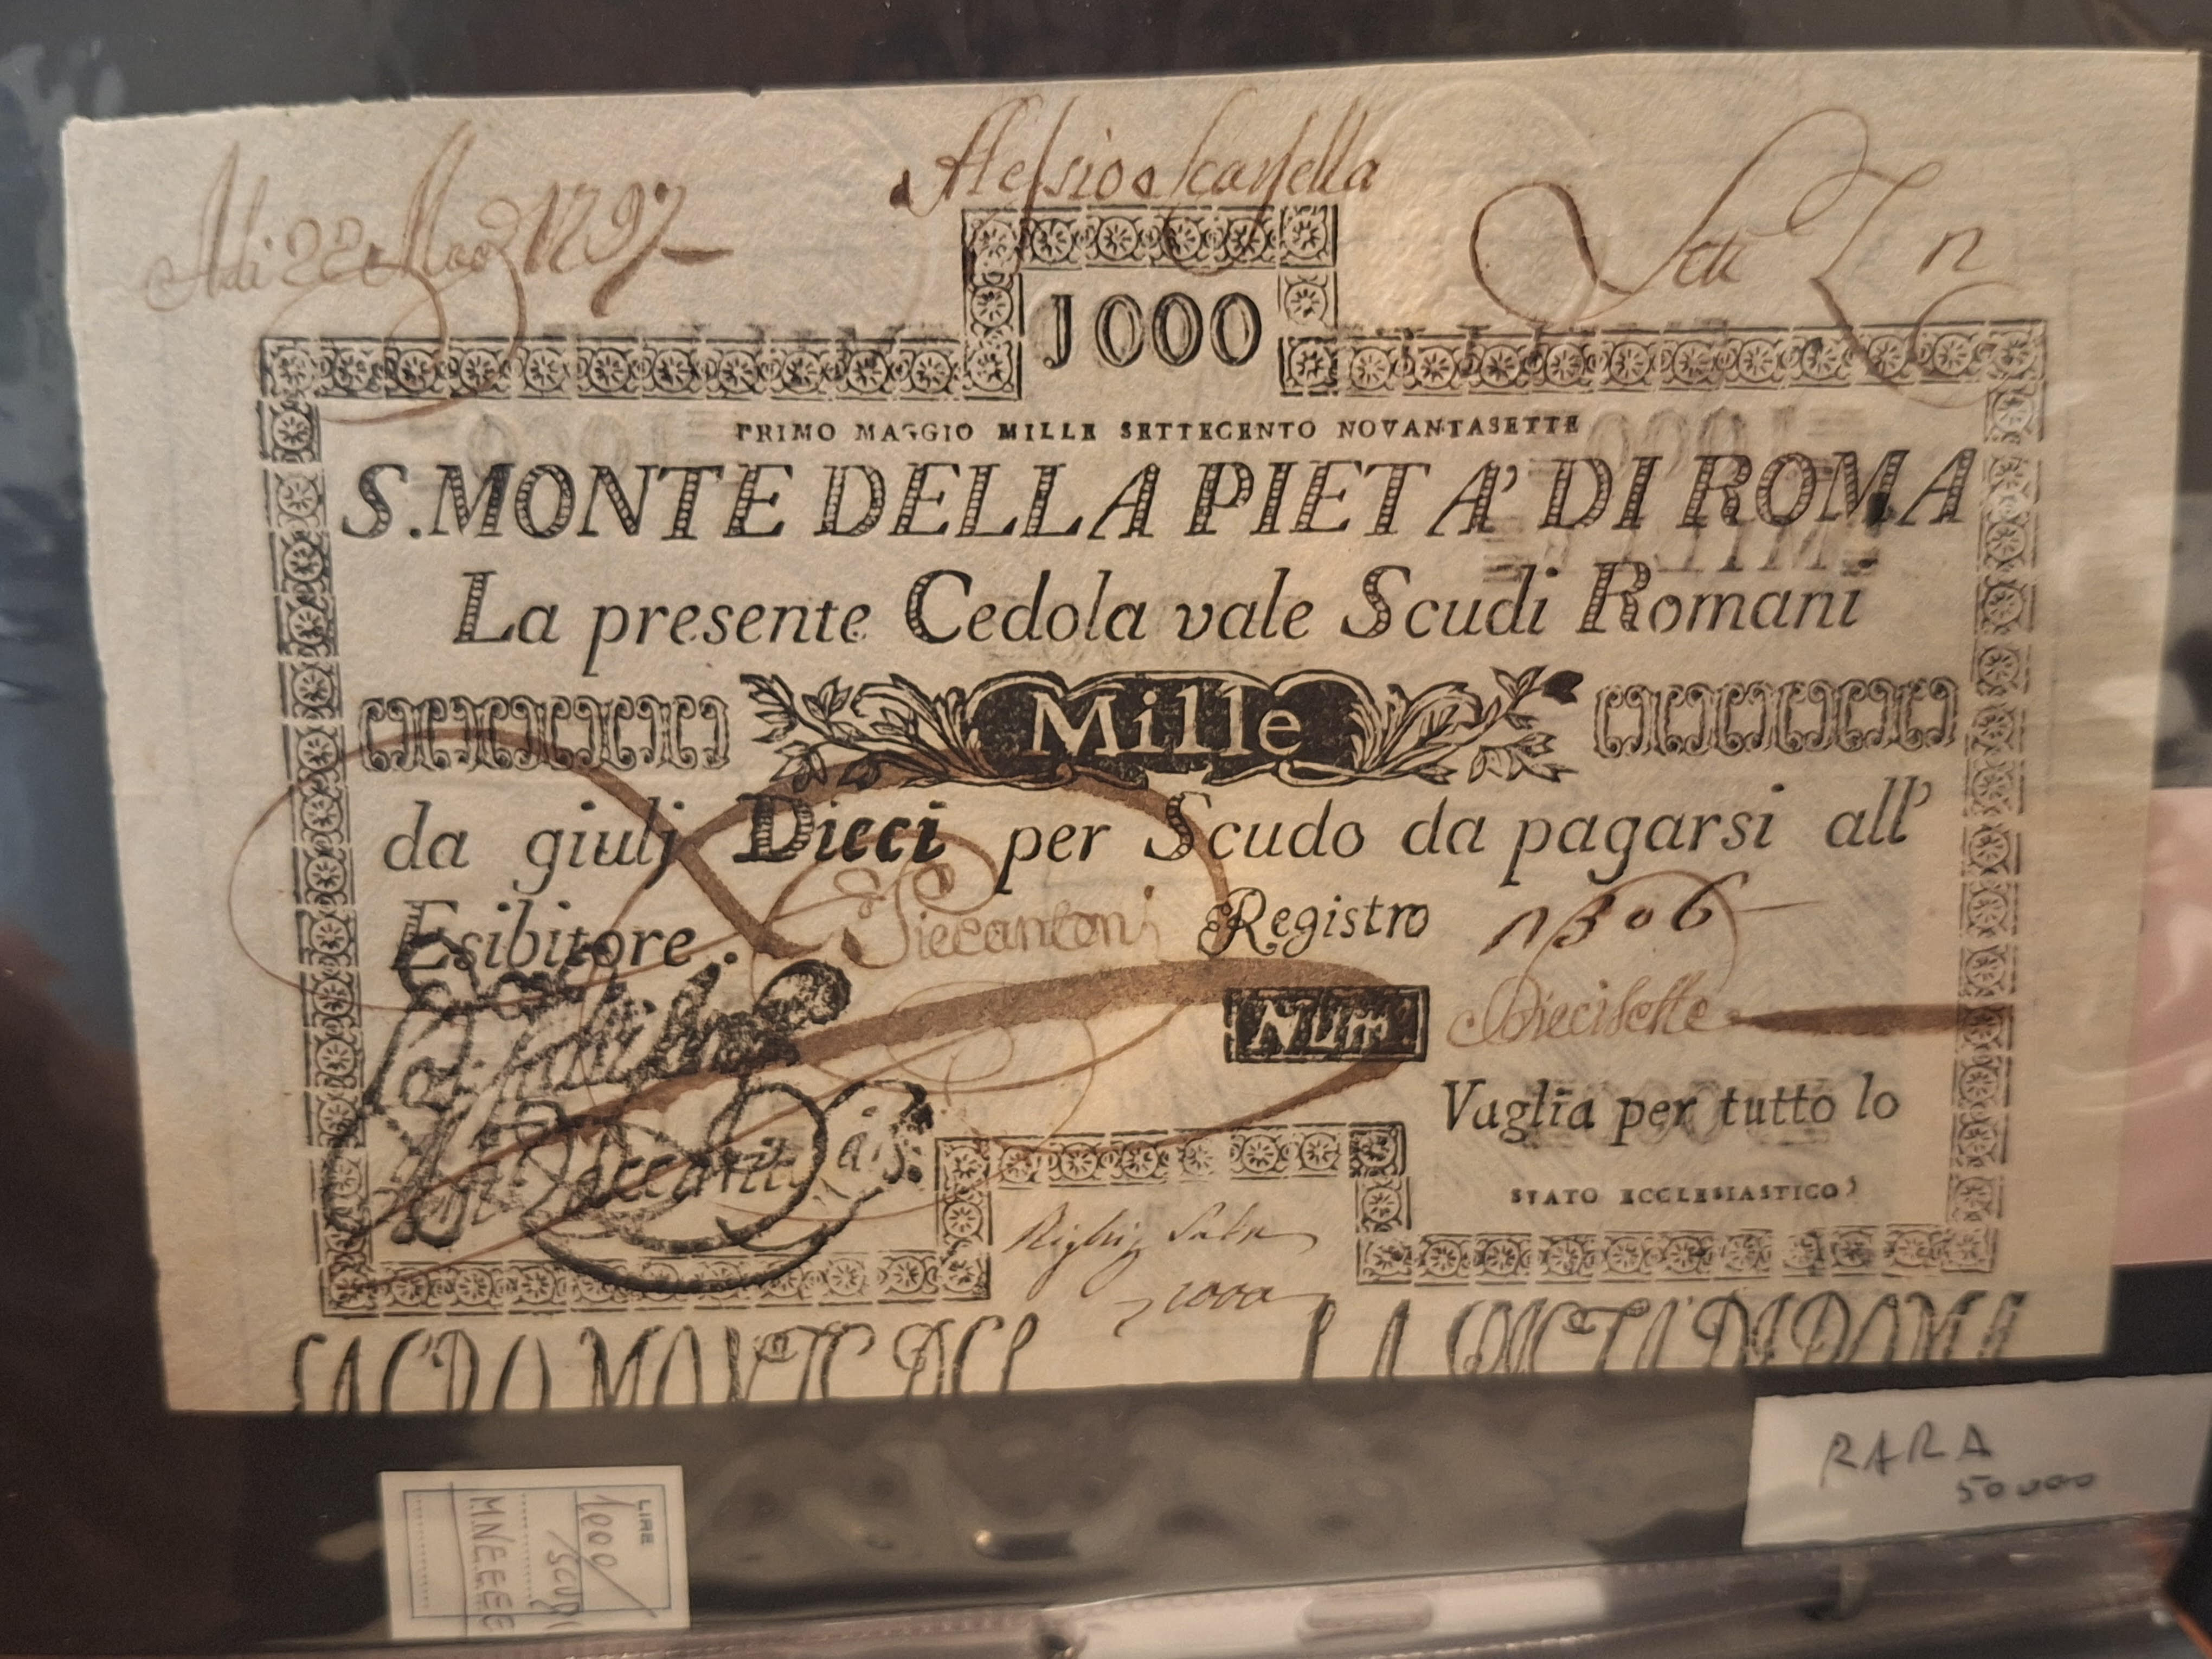 Adi 22 1797
Alessio Scarsella
1000
PRIMO MAGGIO MILLE SETTECENTO NOVANTASETTE
S. MONTE DELLA PIETA' DI ROMA
La presente Cedola vale Scudi Romani
Mille
da giulj Dieci per Scudo da pagarsi all'
Esibitore. Registro 1306
Diecisette
Vaglia per tutto lo
STATO ECCLESIASTICO
1000
SACRO MONTE DEL LA PIETA' DI ROMA
RARA
50000
LIRE
1000/
SCUDI
M.N.E.E.E.E